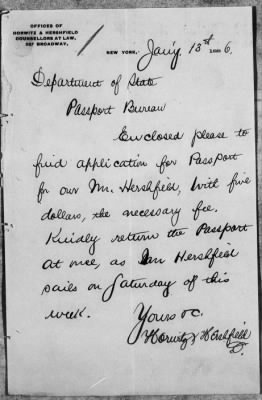 OFFICES OF
HORWITZ & HERSHFIELD
COUNSELLORS AT LAW,
BROADWAY,
NEW YORK, Jan'y. 13th 1886.
Department of State
Passport Bureau
Enclosed please to
find application for Passport
for our Mr. Hershfield, with five
dollars, the necessary fee.
Kindly return the Passport
at once, as Mr Hershfield
sails on Saturday of this
week.
Yours &c.
Horwitz & Hershfield